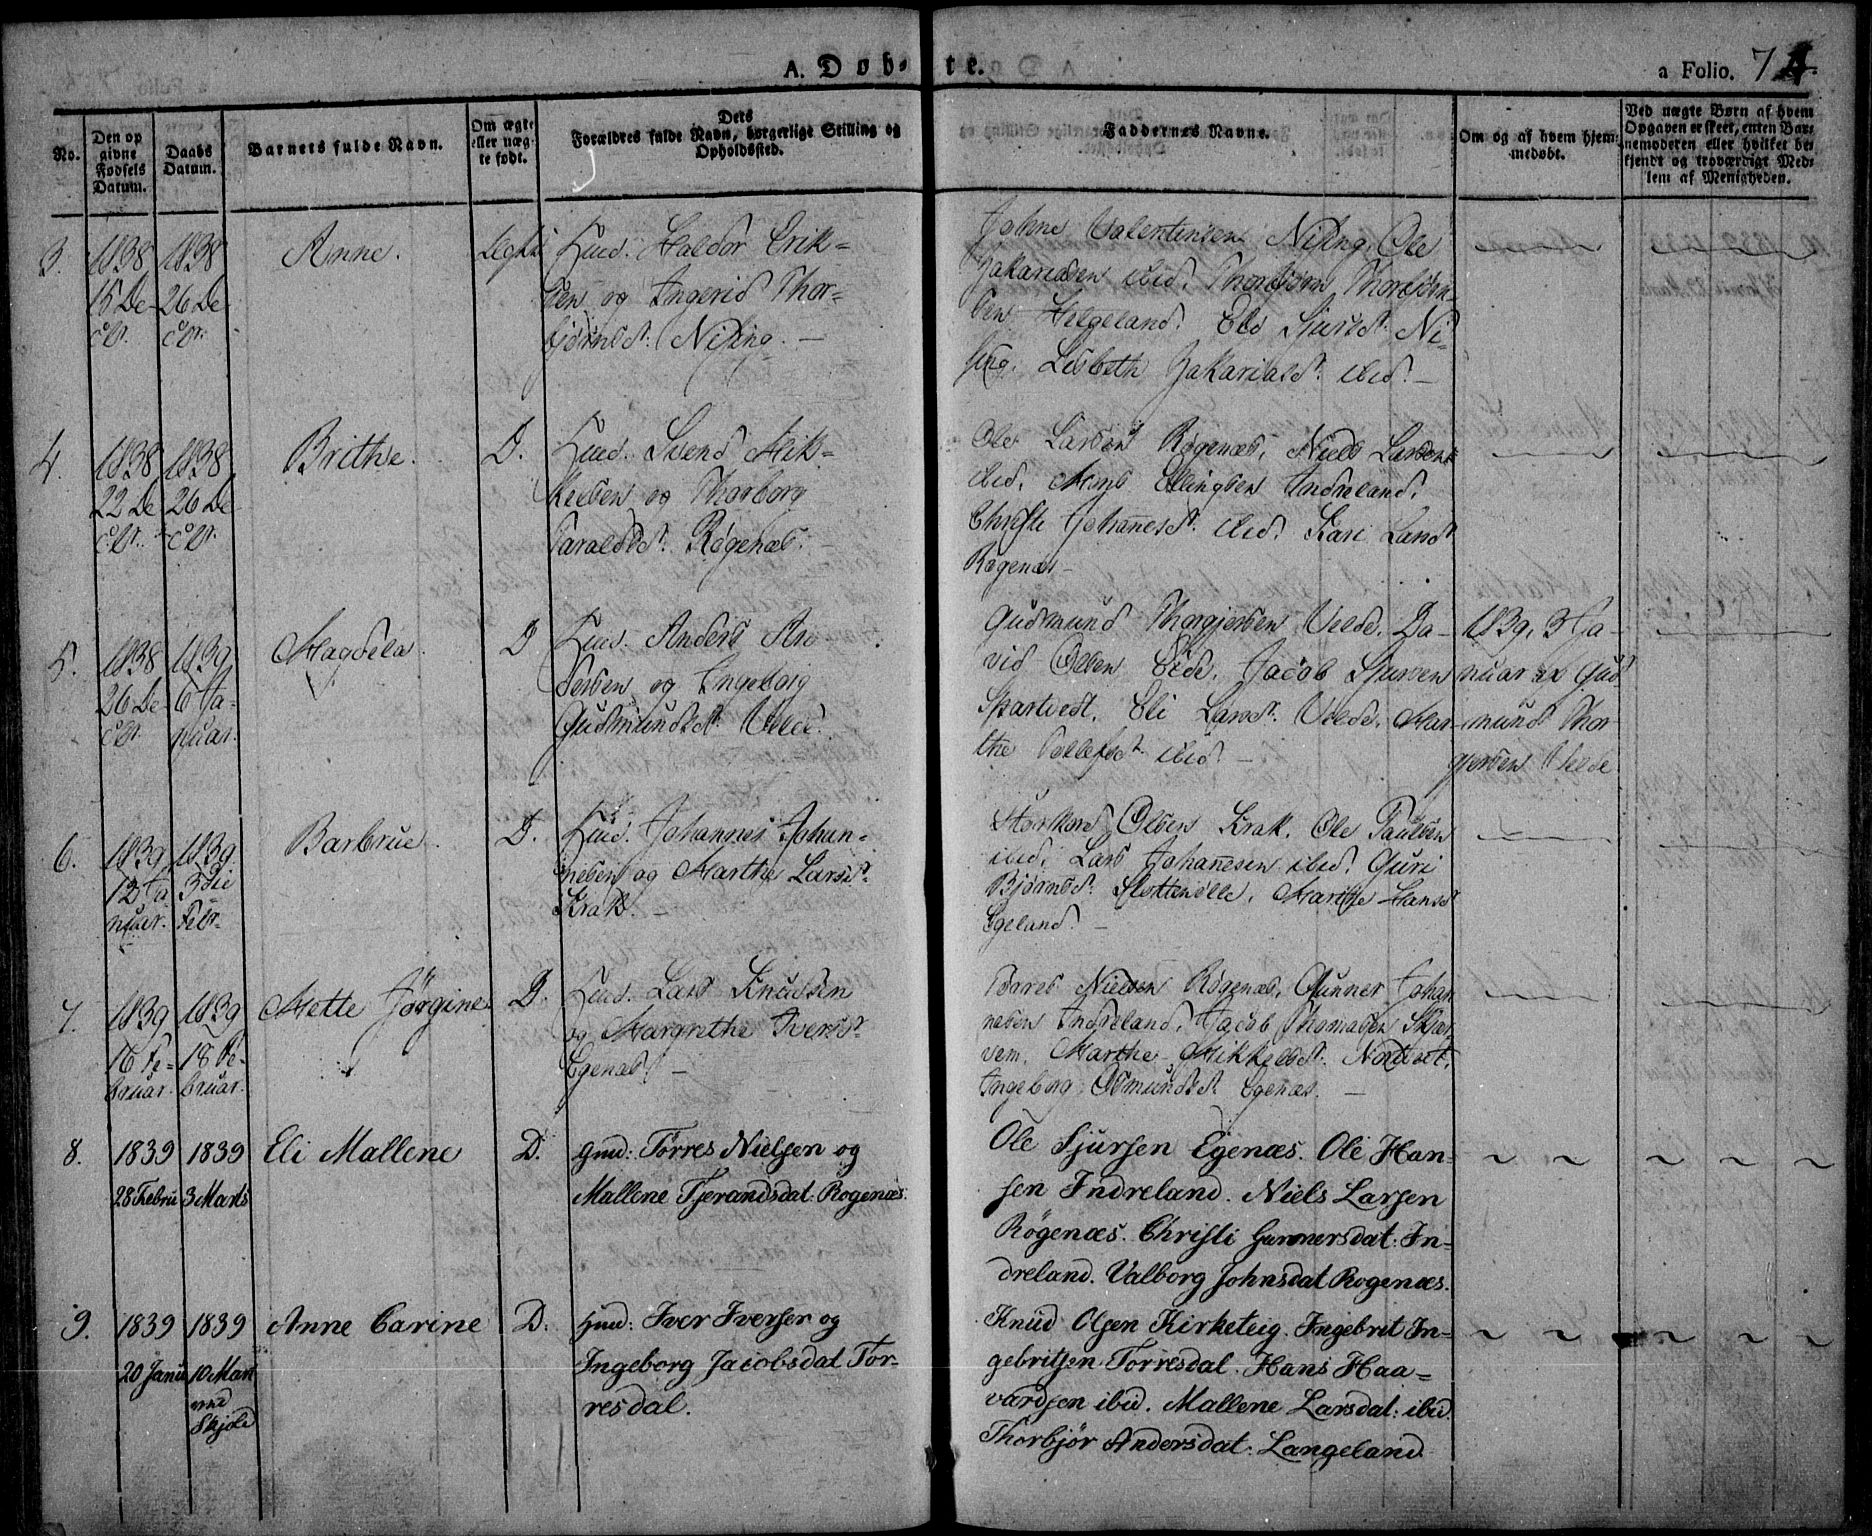 A. Døb-
te.
a Folio. 74
No.
Den op
givne
Fødsels
Datum.
Daabs
Datum.
Barnets fulde Navn.
Om ægte
eller uæg-
te født.
Dets
Forældres fulde Navn, borgerlige Stilling og
Opholdssted.
Faddernes Navne.
Om og af hvem hjem-
medøbt.
Ved uægte Børn af hvem
Opgaven er skeet, enten Bar-
nemoderen eller hvilket be-
kjendt og troværdigt Med-
lem af Menigheden.
3.
1838
15 De-
cbr.
1838
26 De-
cbr.
Anne.
Ægte
Huusd. Haldor Erik-
sen og Ingerid Thor-
bjørnsdt. Nising. -
Johne Valentinsen Nising, Ole
Zakariasen ibid. Thorbjørn Thorbjørn-
sen Helgeland. Eli Sjursdt. Ni-
sing. Lisbeth Zakariasdt. ibid. -
4.
1838
22 De-
cbr.
1838
26 De-
cbr.
Brithe.
D.
Huusd. Svend Mik-
kelsen og Thorborg
Taraldsdt. Røgenæs. -
Ole Larsen Røgenæs, Niels Larsen
ibid. Mons Ellingsen Indreland.
Christi Johannesdt. ibid. Kari Larsdt
Røgenæs -
5.
1838
26 De-
cbr.
1839
6 Ja-
nuar.
Magdela.
D
Huusd. Anders An-
dersen og Ingeborg
Gudmundsdt. Velde.
Gudmund Thorgjersen Velde. Da-
vid Olsen Eide. Jacob Sjursen
Spartvedt. Eli Larsdt. Velde. Mar-
the ibid. -
1839, 3 Ja-
nuar af Gud-
mund Thor-
gjersen Velde
6.
1839
12 Ja-
nuar.
1839
3die
Febr.
Barbrue.
D.
Huusd. Johannes Johan-
nesen og Marthe Larsdt.
Krak. -
Størkord Olsen Krak. Ole Paulsen
ibid. Lars Johannesen ibid. Guri
Bjørnsdt. Marthe Hansdt
Egeland. -
7.
1839
16 Fe-
bruar.
1839
18 Fe-
bruar.
Mette Jørgine
D.
Huusd. Lars Knudsen
og Margrethe Iversdt.
Egenæs -
Nielsen Røgenæs, Gunner Johan-
nesen Indreland. Jacob Thomasen Skjær-
vem. Marthe Mikkelsdt.
Ingeborg Osmundsdt. Egenæs. -
8.
1839
28 Febru
1839
3 Marts
Eli Mallene
D.
Gmd: Tørres Nielsen og
Mallene Tjerandsdat: Røgenæs.
Ole Sjursen Egenæs. Ole Han-
sen Indreland. Niels Larsen
Røgenæs. Christi Gunnersdat: In-
dreland. Valborg Johnsdat Røgenæs.
9.
1839
20 Janu
1839
10 Mart
ved
Skjold
Anne Carine
D.
Hmd: Iver Iversen og
Ingeborg Jacobsdat Tor-
resdal.
Knud Olsen Kirketeig. Ingebret In-
gebritsen Torresdal. Hans Haa-
vardsen ibid. Mallene Larsdat: ibid.
Thorbjør Andersdat: Langeland.